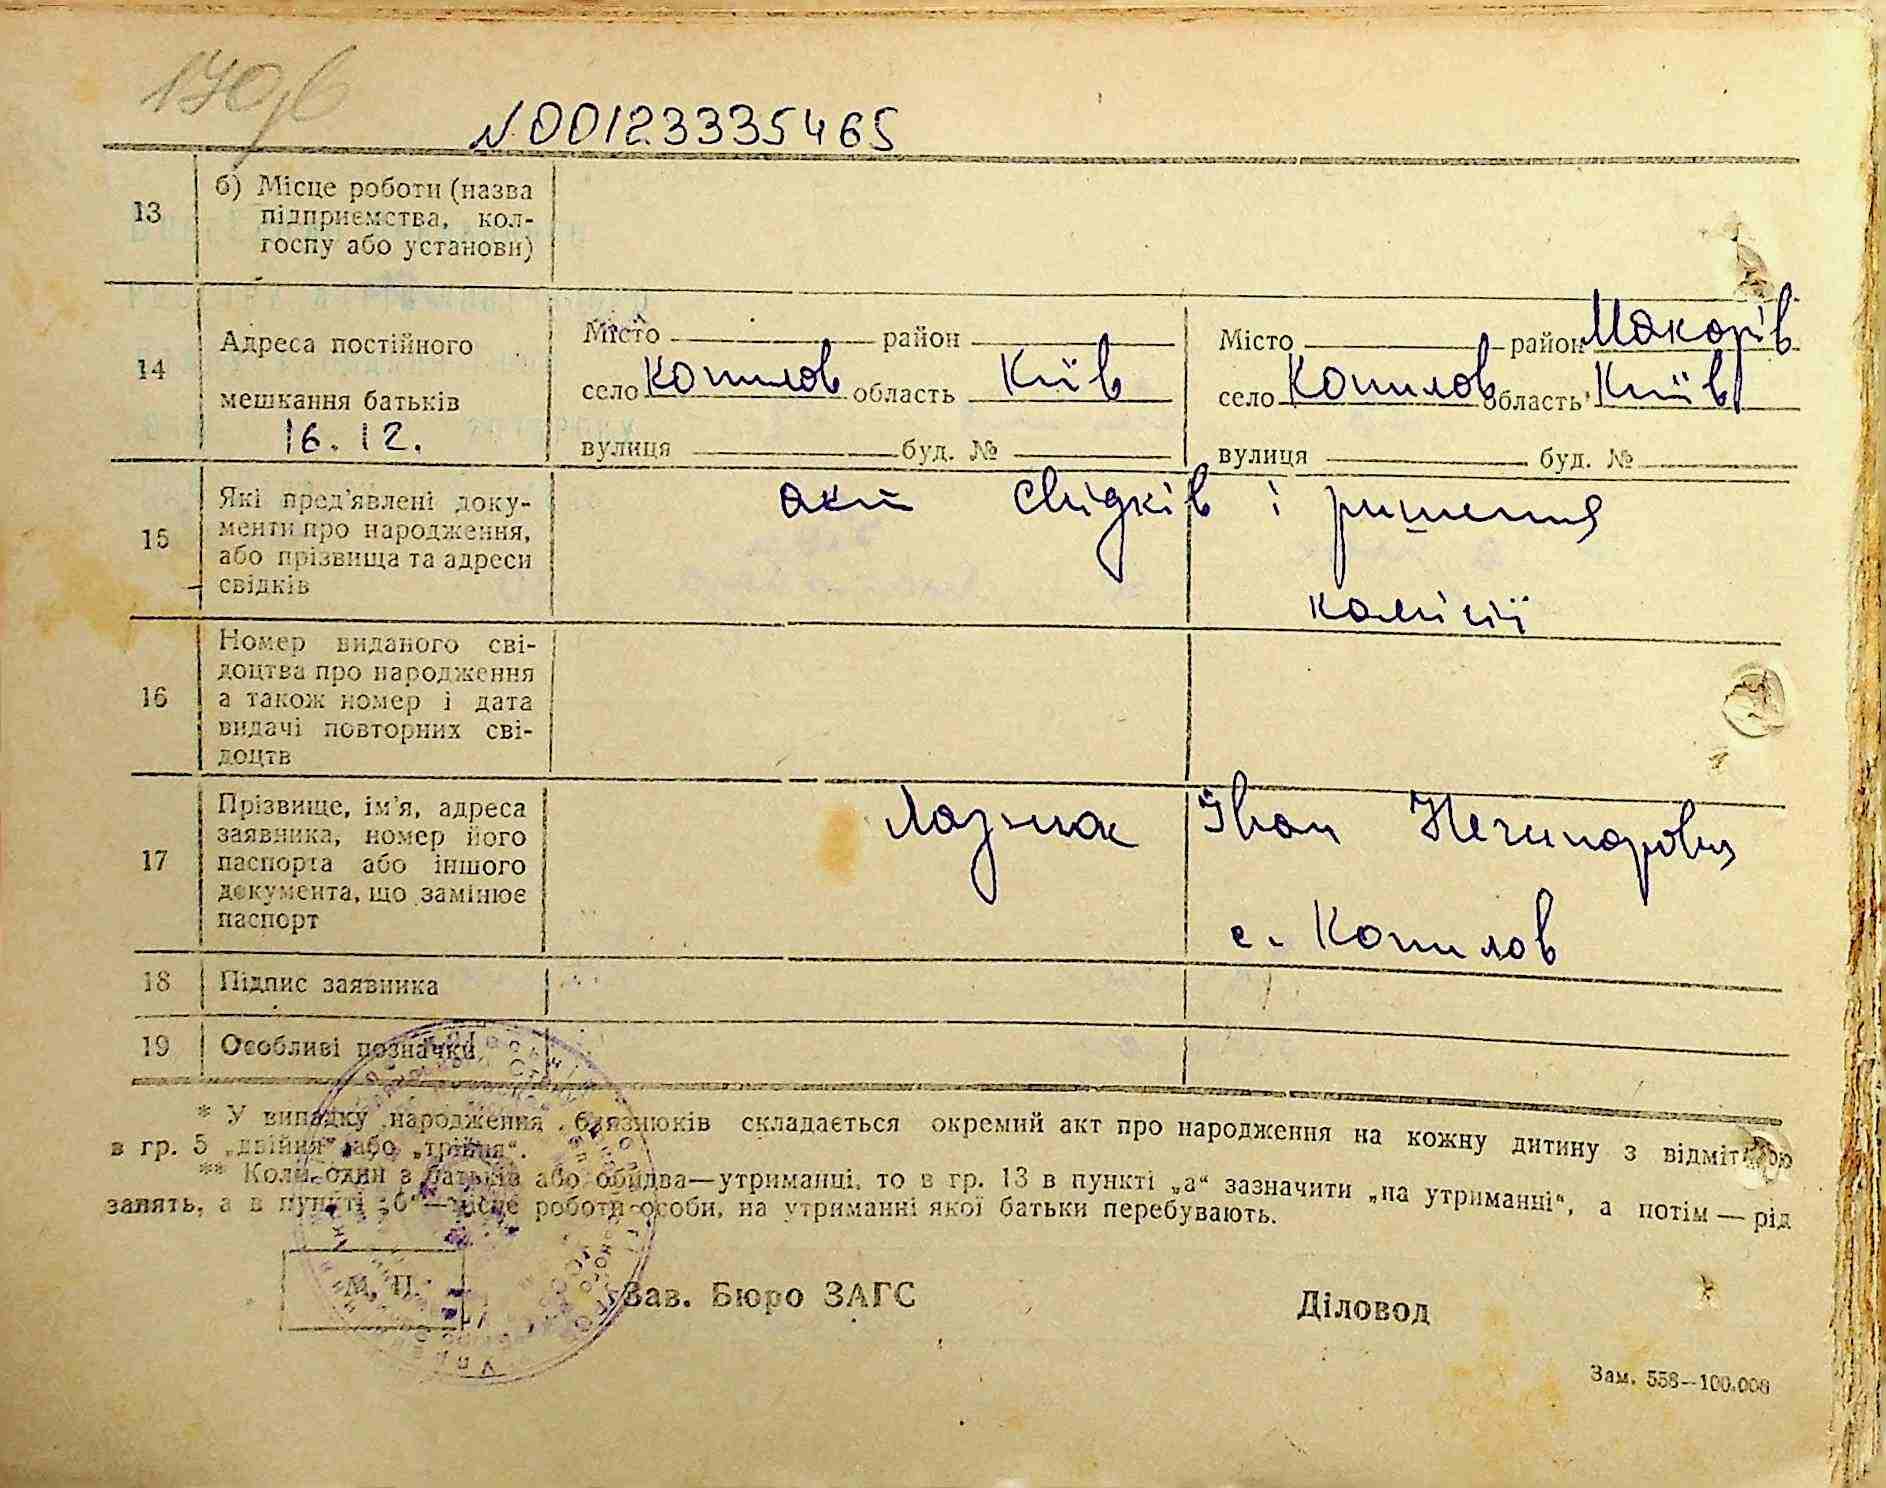 170б
N00123335465
13
б) Місце роботи (назва
підприємства, кол-
госпу або установи)
14
Адреса постійного
мешкання батьків
16.12.
Місто район
село Копилов область Київ
вулиця буд. №
Місто район Макарів
село Копилов область Київ
вулиця буд. №
15
Які пред’явлені доку-
менти про народження,
або прізвища та адреси
свідків
акт свідків і ришення
комісії
16
Номер виданого сві-
доцтва про народження
а також номер і дата
видачі повторних сві-
доцтв
17
Прізвище, ім’я, адреса
заявника, номер його
паспорта або іншого
документа, що замінює
паспорт
Іван Нечипорович
с. Копилов
18
Підпис заявника
19
Особливі позначки
* У випадку народження близнюків складається окремий акт про народження на кожну дитину з відміткою
в гр. 5 „двійня“ або „трійня“.
** Коли один з батьків або обидва—утриманці, то в гр. 13 в пункті „а“ зазначити „на утриманні“, а потім — рід
занять, а в пункті „б“—місце роботи особи, на утриманні якої батьки перебувають.
М. П.
Зав. Бюро ЗАГС
Діловод
Зам. 558—100.000